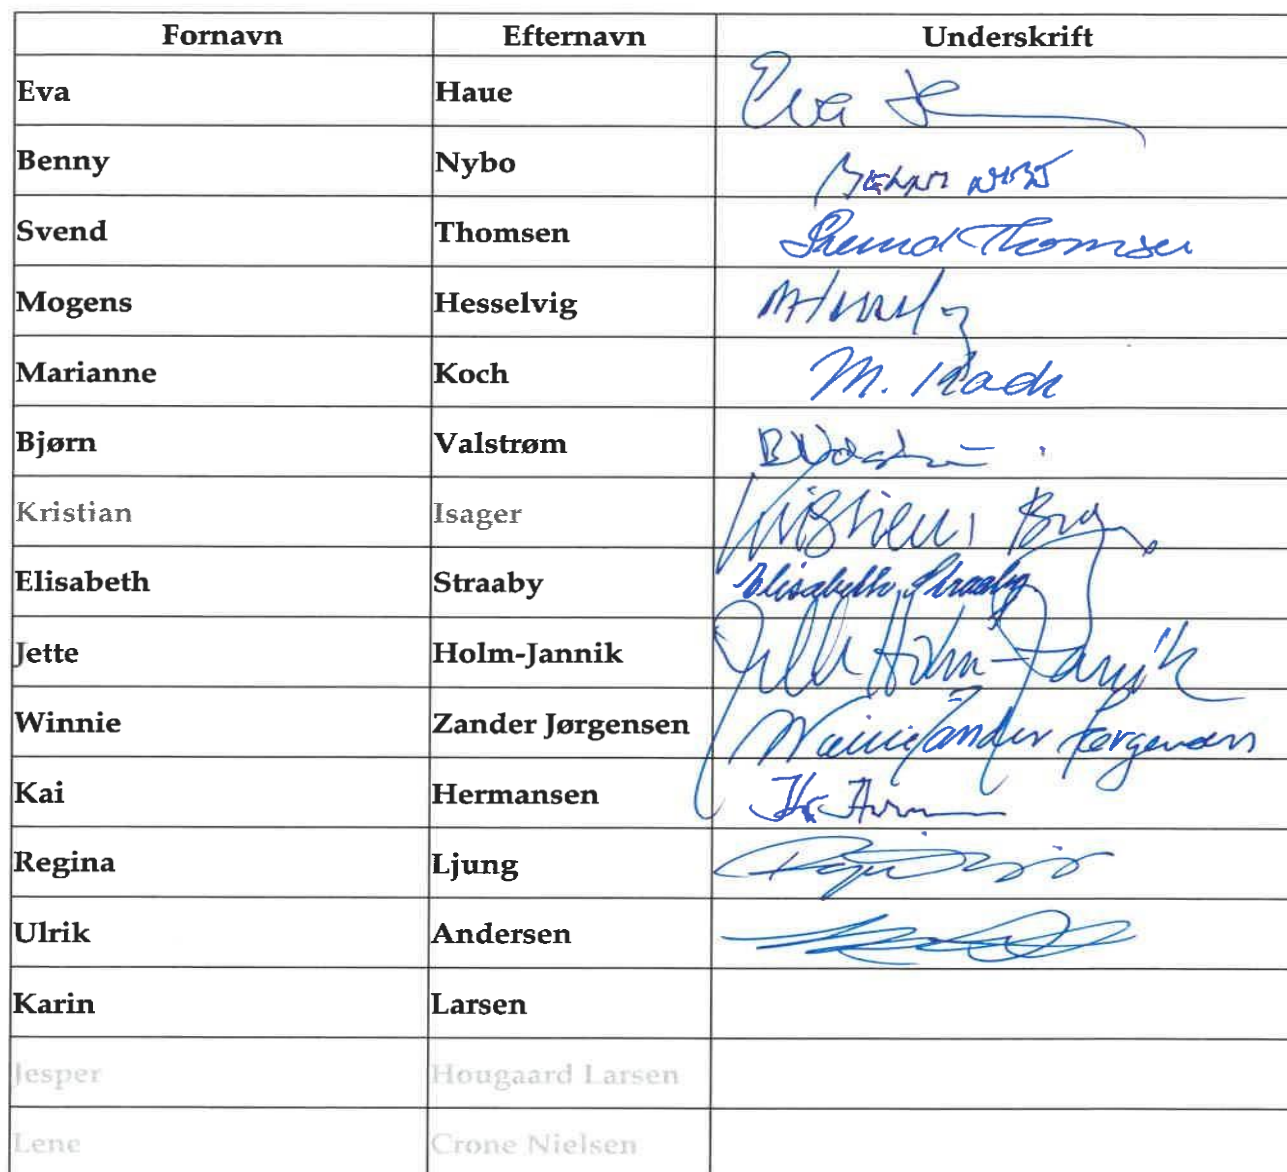 Fornavn Efternavn Underskrift
Eva Haue Eva
Benny Nybo
Svend Thomsen Svend Thomsen
Mogens Hesselvig
Marianne Koch M. Koch
Bjørn Valstrøm
Kristian Isager
Elisabeth Straaby Elisabeth Straaby
Jette Holm-Jannik Jette Holm-Jannik
Winnie Zander Jørgensen Winnie Zander Jørgensen
Kai Hermansen
Regina Ljung
Ulrik Andersen
Karin Larsen
Jesper Hougaard Larsen
Lene Crone Nielsen